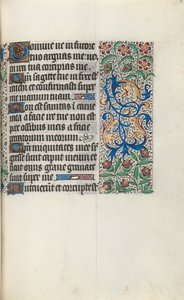 Domine ne in furore
tuo arguas me ne
in ira tua corripias me
sagitte tue infixe st
michi et confirmasti
me manum tuam
Non est sanitas i carne
mea a facie ire tue non est
pax ossibus meis a facie
peccatorum meorum
iniquitates mee
gresse sunt caput meum et
onus grave gravate
sunt super me
et corrupte st